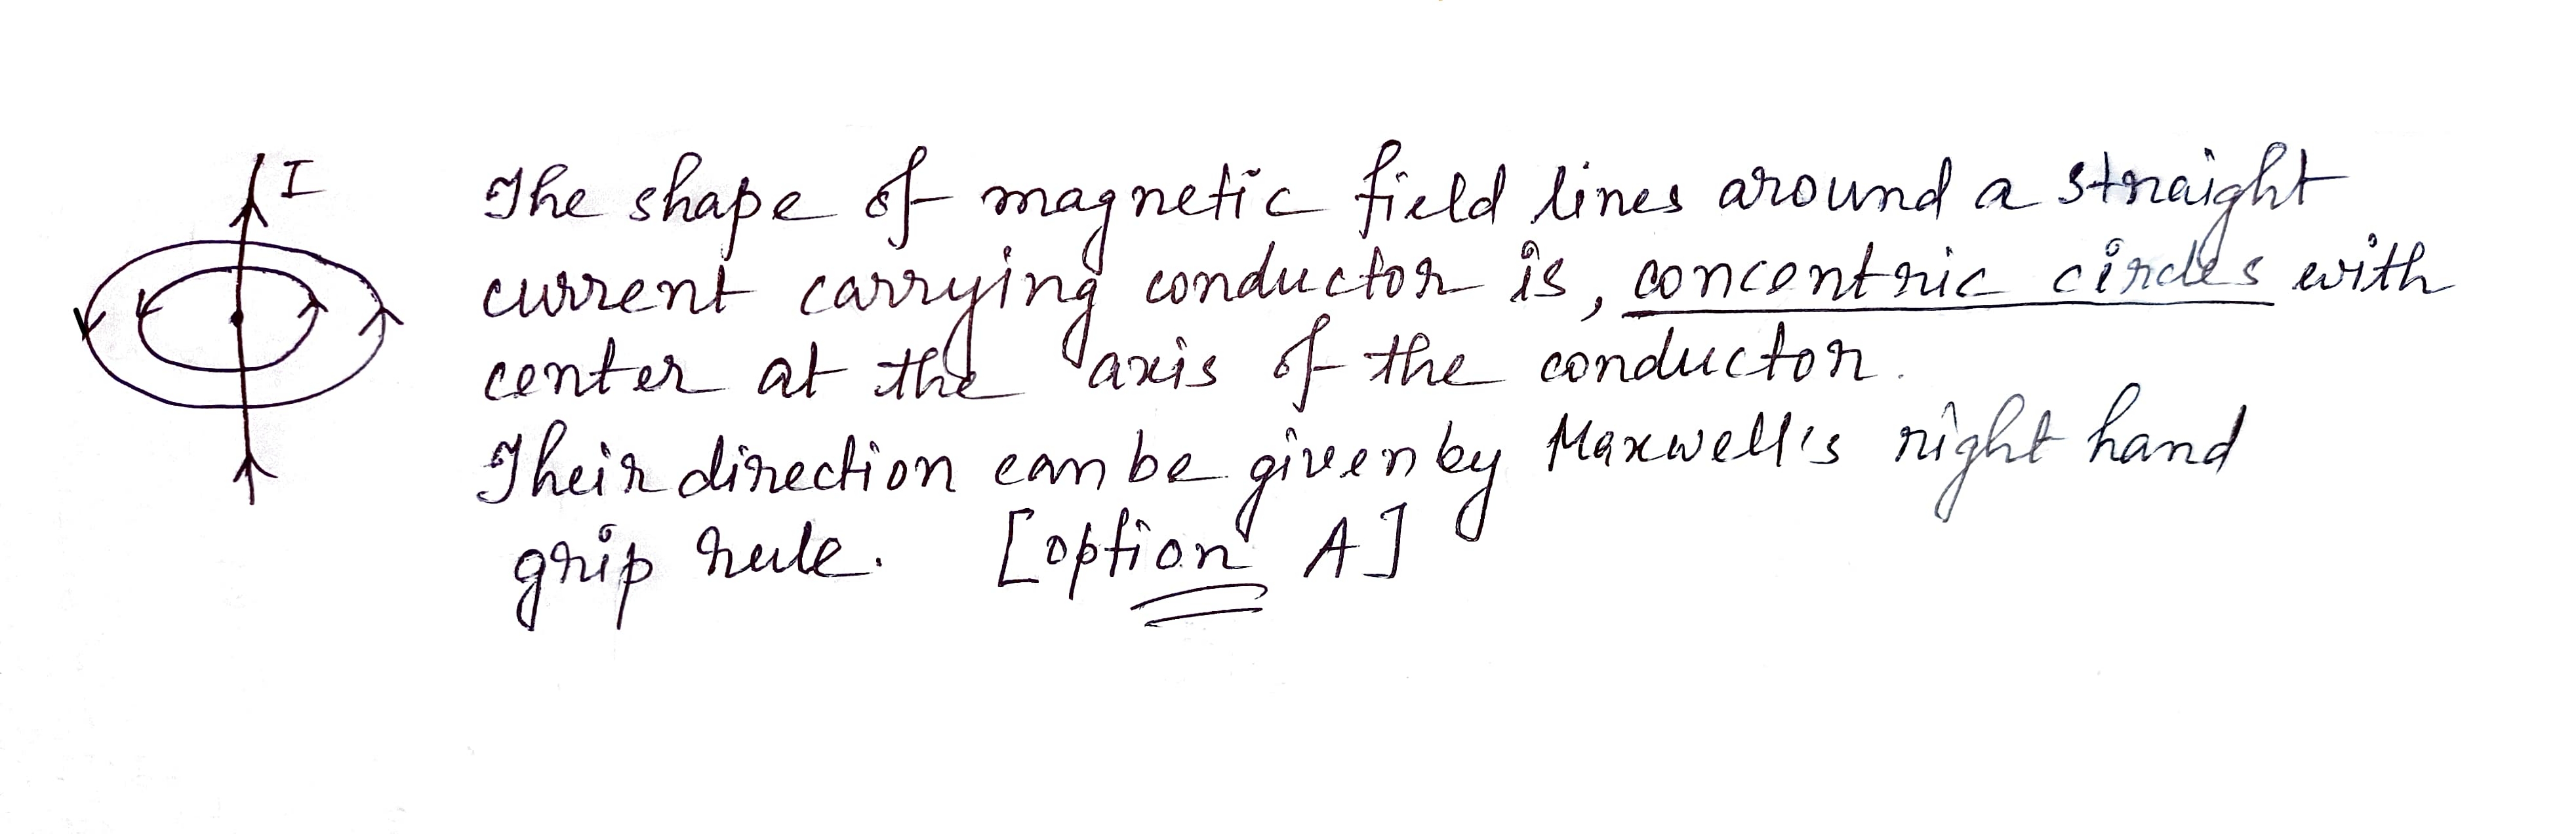 I
The shape of magnetic field lines around a straight
current carrying conductor is, concentric circles with
center at the axis of the conductor.
Their direction can be given by Maxwell's right hand
grip rule. [option A]